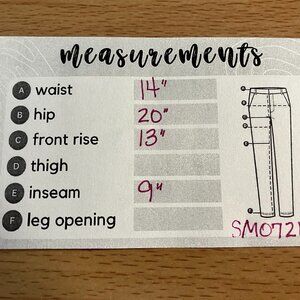 measurements
A waist 14"
B hip 20"
C front rise 13"
D thigh
E inseam 9"
F leg opening